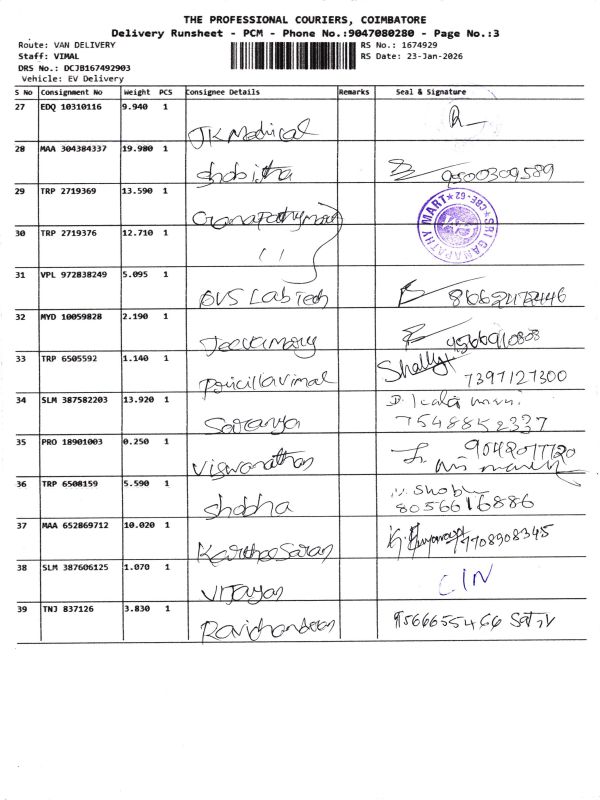 THE PROFESSIONAL COURIERS, COIMBATORE
Delivery Runsheet - PCM - Phone No.:9047080280 - Page No.:3
Route: VAN DELIVERY
RS No.: 1674929
Staff: VIMAL
RS Date: 23-Jan-2026
DRS No.: DCJB167492903
Vehicle: EV Delivery
S No Consignment No Weight PCS Consignee Details Remarks Seal & Signature
27 EDQ 10310116 9.940 1
JK Medical
28 MAA 304384337 19.980 1
Shobitha 9500309589
29 TRP 2719369 13.590 1
Ganapathy mart
SRI GANAPATHY MART CBE-62
30 TRP 2719376 12.710 1
11
31 VPL 972838249 5.095 1
BVS Lab Tech 8662172446
32 MYD 10059828 2.190 1
9566910808
33 TRP 6505592 1.140 1
Priscilla vimal Shally 7397127300
34 SLM 387582203 13.920 1
Saranya 7548852337
35 PRO 18901003 0.250 1
Viswanathan 9042077720
36 TRP 6508159 5.590 1
Shobha 8056616886
37 MAA 652869712 10.020 1
7708908345
38 SLM 387606125 1.070 1
Vijayan
39 TNJ 837126 3.830 1
Ravichandran 9566655466